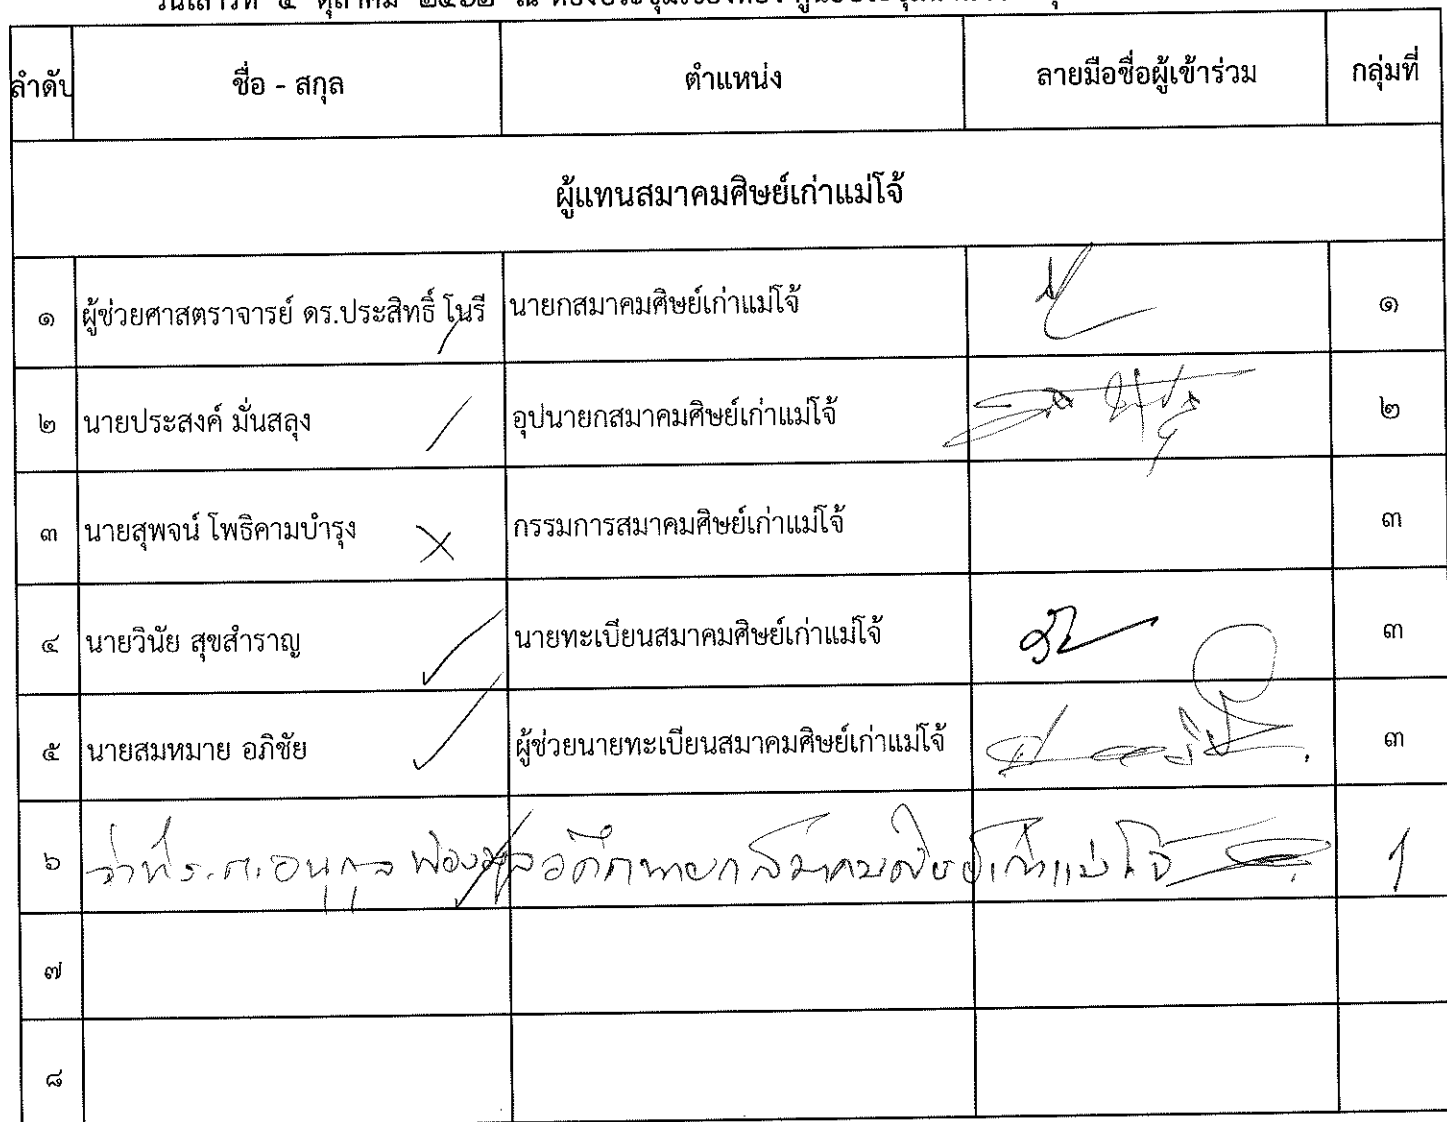 วันเสาร์ที่ ๕ ตุลาคม ๒๕๖๒ ณ ห้องประชุม
ลำดับ ชื่อ - สกุล ตำแหน่ง ลายมือชื่อผู้เข้าร่วม กลุ่มที่
ผู้แทนสมาคมศิษย์เก่าแม่โจ้
๑ ผู้ช่วยศาสตราจารย์ ดร.ประสิทธิ์ โนรี นายกสมาคมศิษย์เก่าแม่โจ้ ๑
๒ นายประสงค์ มั่นสลุง อุปนายกสมาคมศิษย์เก่าแม่โจ้ ๒
๓ นายสุพจน์ โพธิคามบำรุง กรรมการสมาคมศิษย์เก่าแม่โจ้ ๓
๔ นายวินัย สุขสำราญ นายทะเบียนสมาคมศิษย์เก่าแม่โจ้ ๓
๕ นายสมหมาย อภิชัย ผู้ช่วยนายทะเบียนสมาคมศิษย์เก่าแม่โจ้ ๓
๖ ว่าที่ร.ต.อนุกูล อดีตนายกสมาคมศิษย์เก่าแม่โจ้ 1
๗
๘